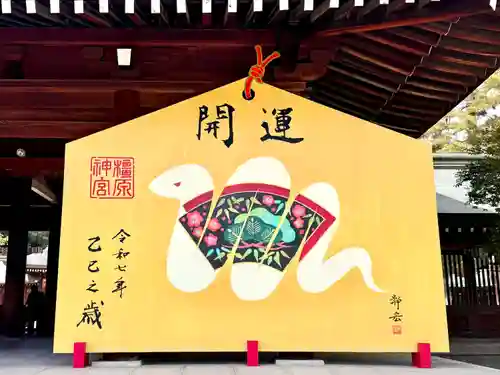 開運
橿原
神宮
令和七年
乙巳之歳